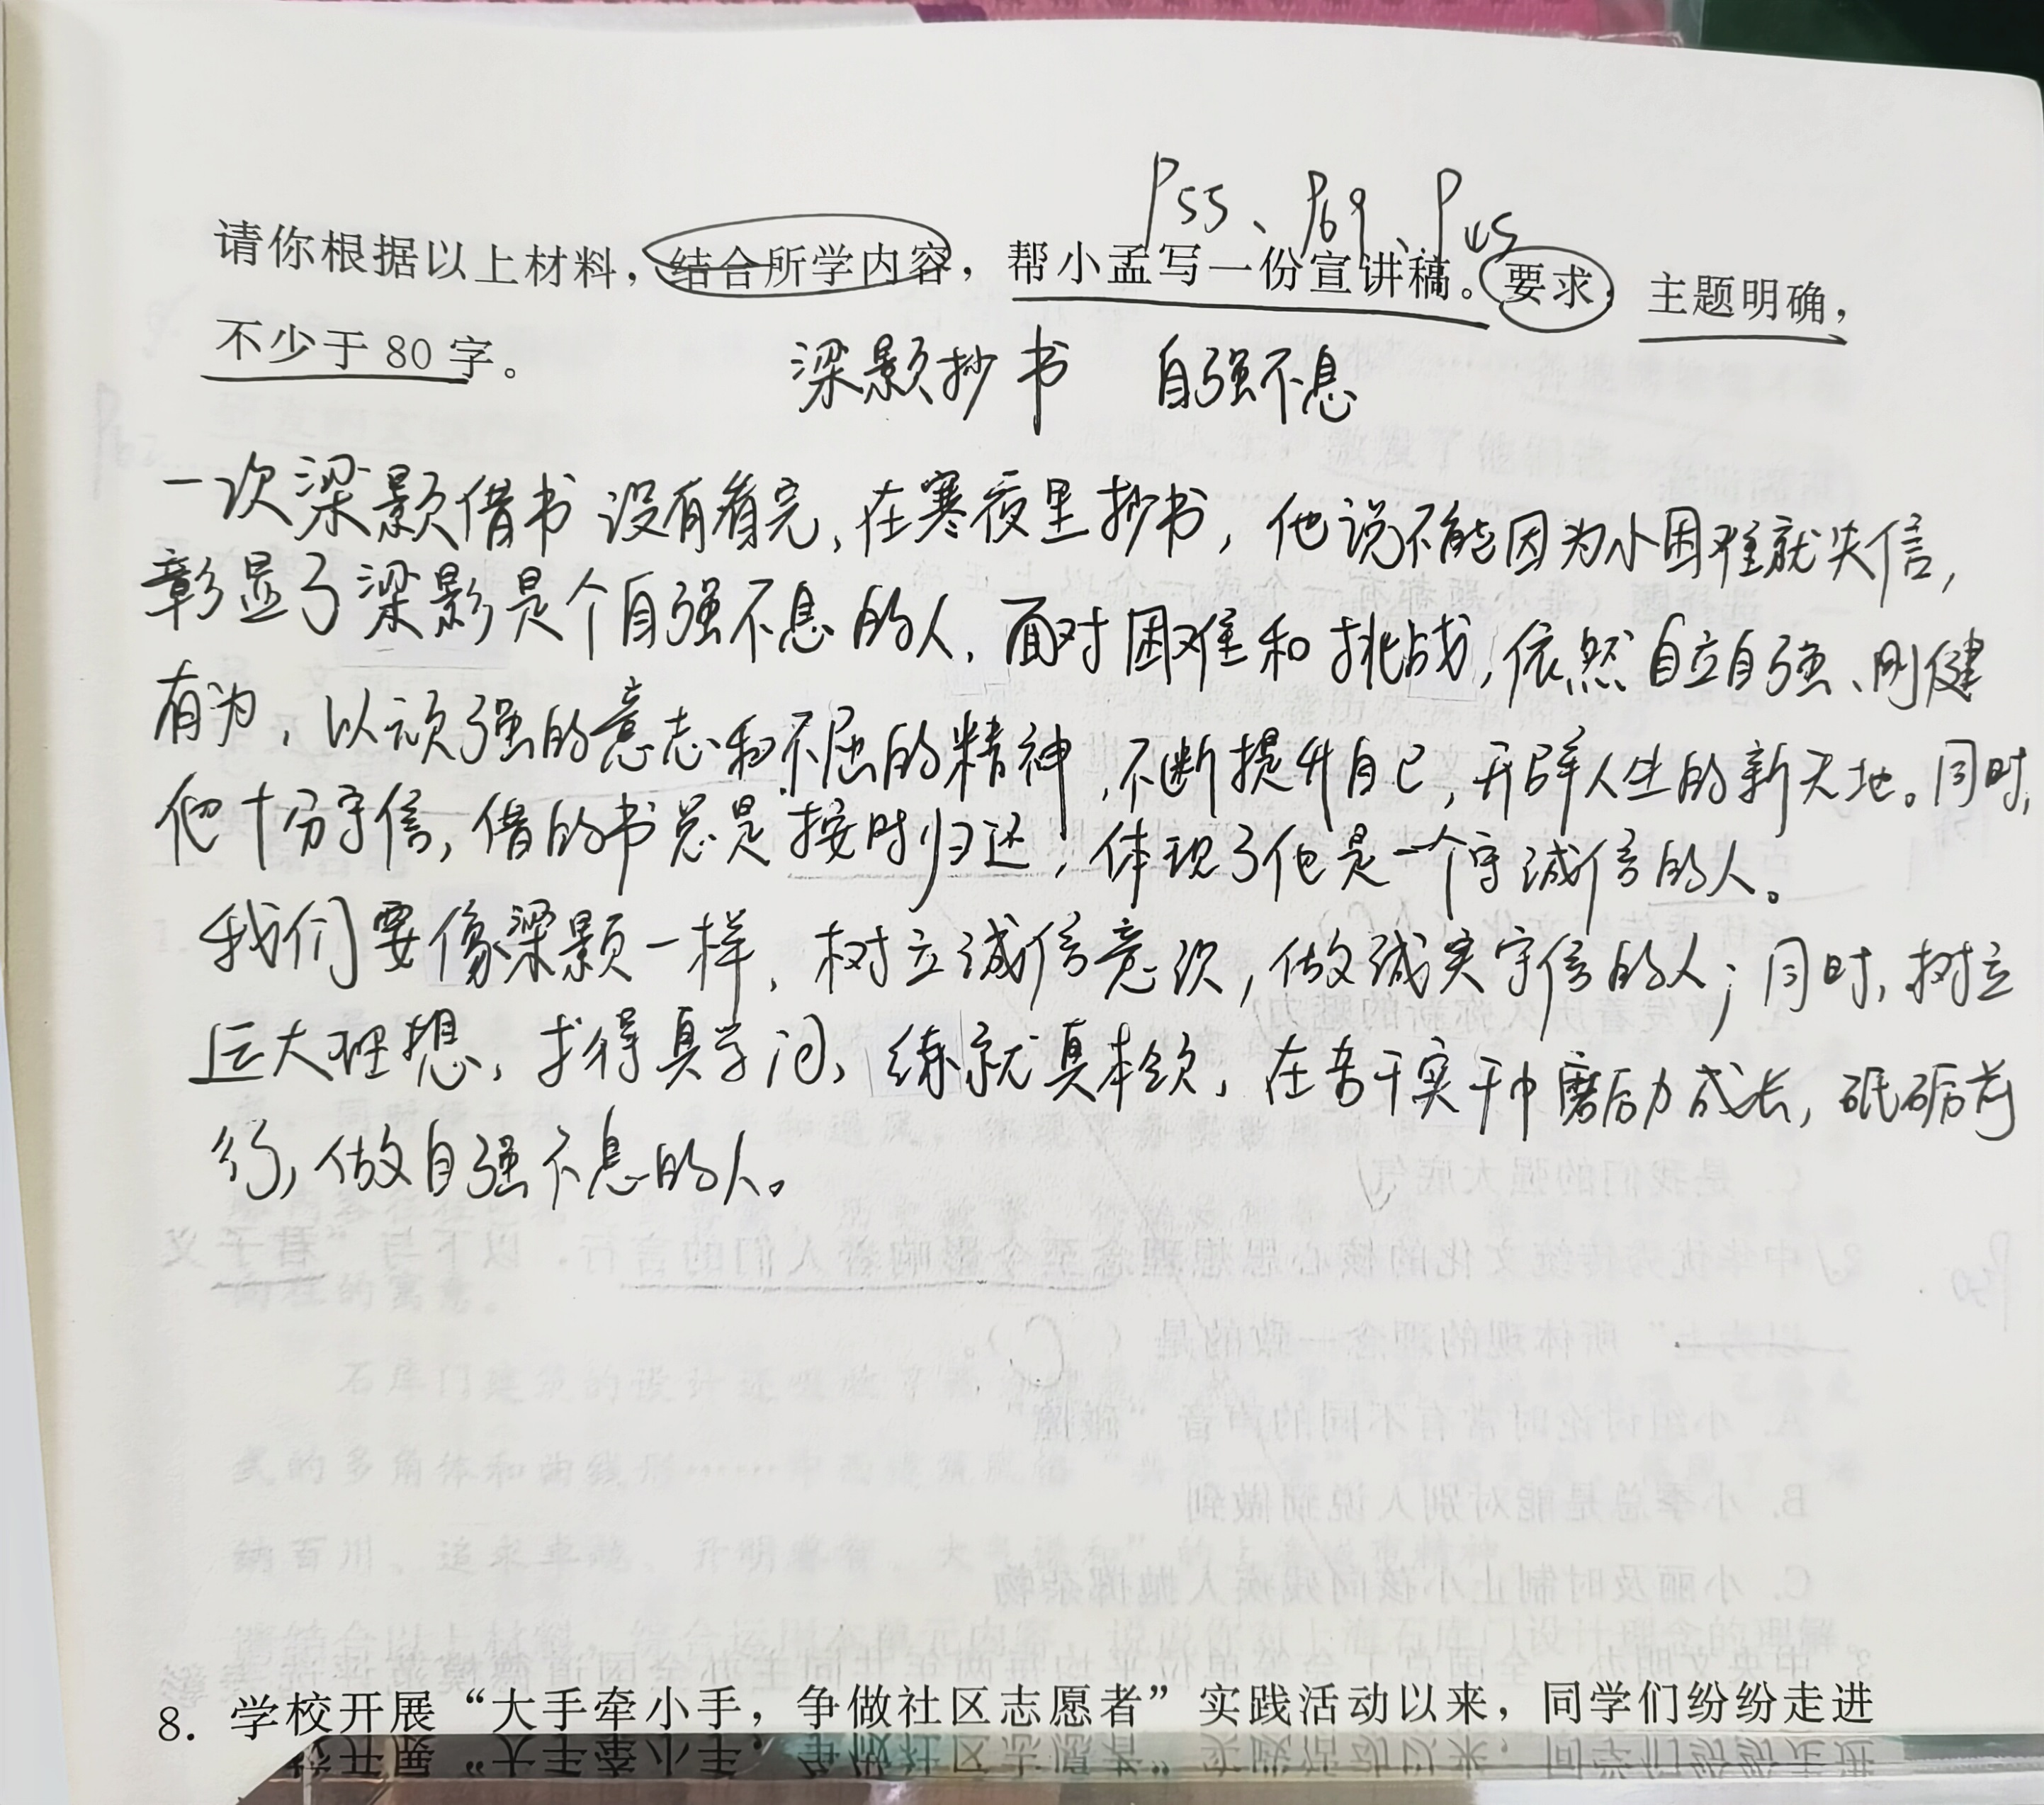 P55、P69、P45
请你根据以上材料，结合所学内容，帮小孟写一份宣讲稿。要求：主题明确，
不少于 80 字。
梁颢抄书 自强不息
一次梁颢借书没有看完，在寒夜里抄书，他说不能因为小困难就失信，
彰显了梁影是个自强不息的人，面对困难和挑战，依然自立自强、刚健
有为，以顽强的意志和不屈的精神，不断提升自己，开辟人生的新天地。同时，
他十分守信，借的书总是按时归还，体现了他是一个守诚信的人。
我们要像梁颢一样，树立诚信意识，做诚实守信的人；同时，树立
远大理想，求得真学问，练就真本领，在苦干实干中磨励成长，砥砺前
行，做自强不息的人。
8. 学校开展“大手牵小手，争做社区志愿者”实践活动以来，同学们纷纷走进